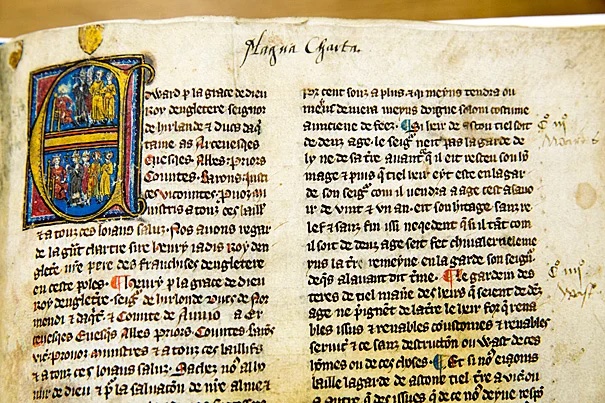 Magna Charta.
Edward p la grace de dieu
Roy dengletere seignor
de hirlande & ducs daq
taine as Arceuesqes
Euesqes Abbes Priors
Countes Barons Justi
ces viscountes Prouoz mi
nistres a touz ces baill
& a touz ces loiaus saluz. Nos auons regar
de la gnt chartre sire henry iadis Roy den
glete nre pere des franchises dengletere
en ceste poles. henry p la grace de dieu
Roy dengletre. seign de hirlonde
mendi & daqt. & Comte de Aniuo a Er
ceuesqes Euesqs Abbes Priors. Countes barōs
vic. prouoz ministres & touz ces bailifs
& a touz ces loiaus saluz. Sachez nos ally
nur de dieu & p la saluaciōn de nre alme &
por cent souz a plus. & qi meyns tendra ou
meins deuera meyns doigne solom custume
annciene de feez. Si heir de ascou tiel soit
de deuz age. le seign neit pas la garde de
ly ne de sa tre auant q il eit resceu son ho
mage & puis q tiel heir eyt este en la gar
de son seign com il uendra a age cest a sauo
ir de vint & vn an. eit son heritage sanz re
lef & sanz fin issi neqedent q si il tāt com
il soit de deuz age seit fet chiualer ieleme
yns la tre remeyne en la garde son seign
desqs alauant dit tme. Le gardein des
teres de tiel man des heirs q seient de dez
age. ne pignēt de la tre le heir for q rena
bles issus & renables coustomes & renables
seruic & ce sanz destructōn ou wast de ces
homes ou de ces choses. Et si nos eioms
baille la garde de ascone tiel tre a vic ou
a autre q des issues de ce nos deyue respō